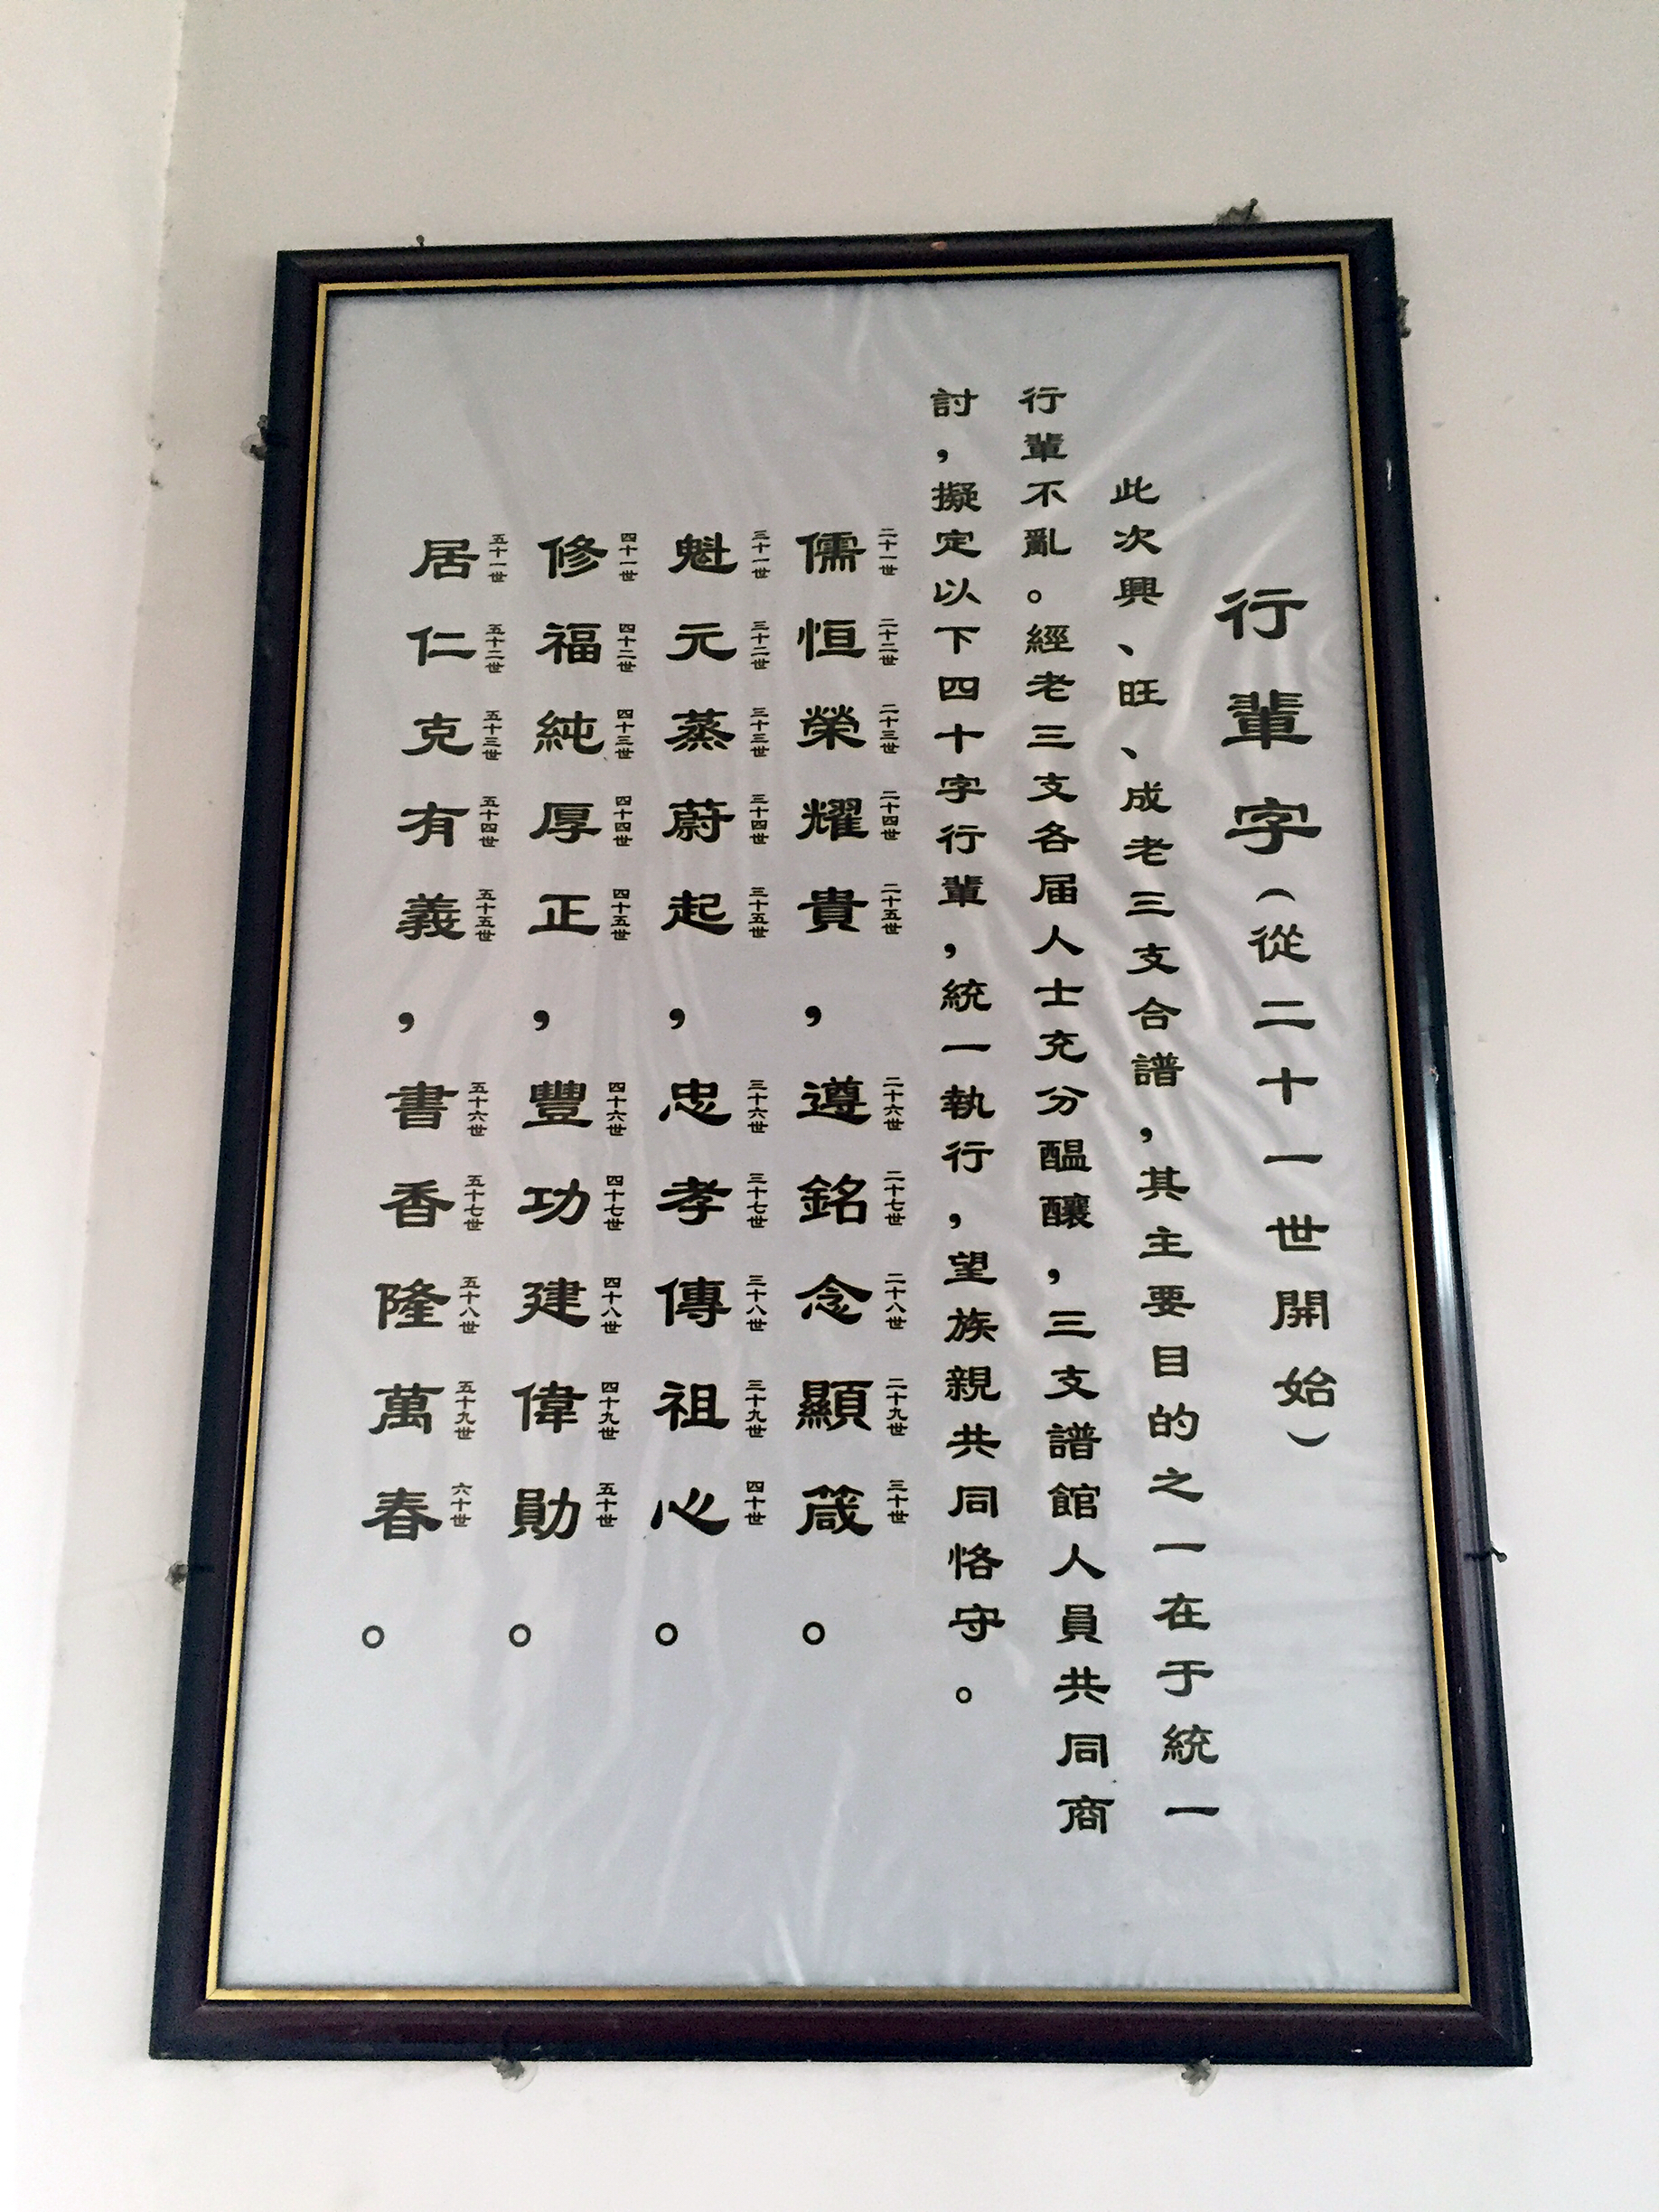 行輩字（從二十一世開始）
此次興、旺、成老三支合譜，其主要目的之一在于統一
行輩不亂。經老三支各届人士充分醞釀，三支譜館人員共同商
討，擬定以下四十字行輩，統一執行，望族親共同恪守。
二十一世 二十二世 二十三世 二十四世 二十五世 二十六世 二十七世 二十八世 二十九世 三十世
儒恒榮耀貴，遵銘念顯箴。
三十一世 三十二世 三十三世 三十四世 三十五世 三十六世 三十七世 三十八世 三十九世 四十世
魁元蒸蔚起，忠孝傳祖心。
四十一世 四十二世 四十三世 四十四世 四十五世 四十六世 四十七世 四十八世 四十九世 五十世
修福純厚正，豐功建偉勛。
五十一世 五十二世 五十三世 五十四世 五十五世 五十六世 五十七世 五十八世 五十九世 六十世
居仁克有義，書香隆萬春。